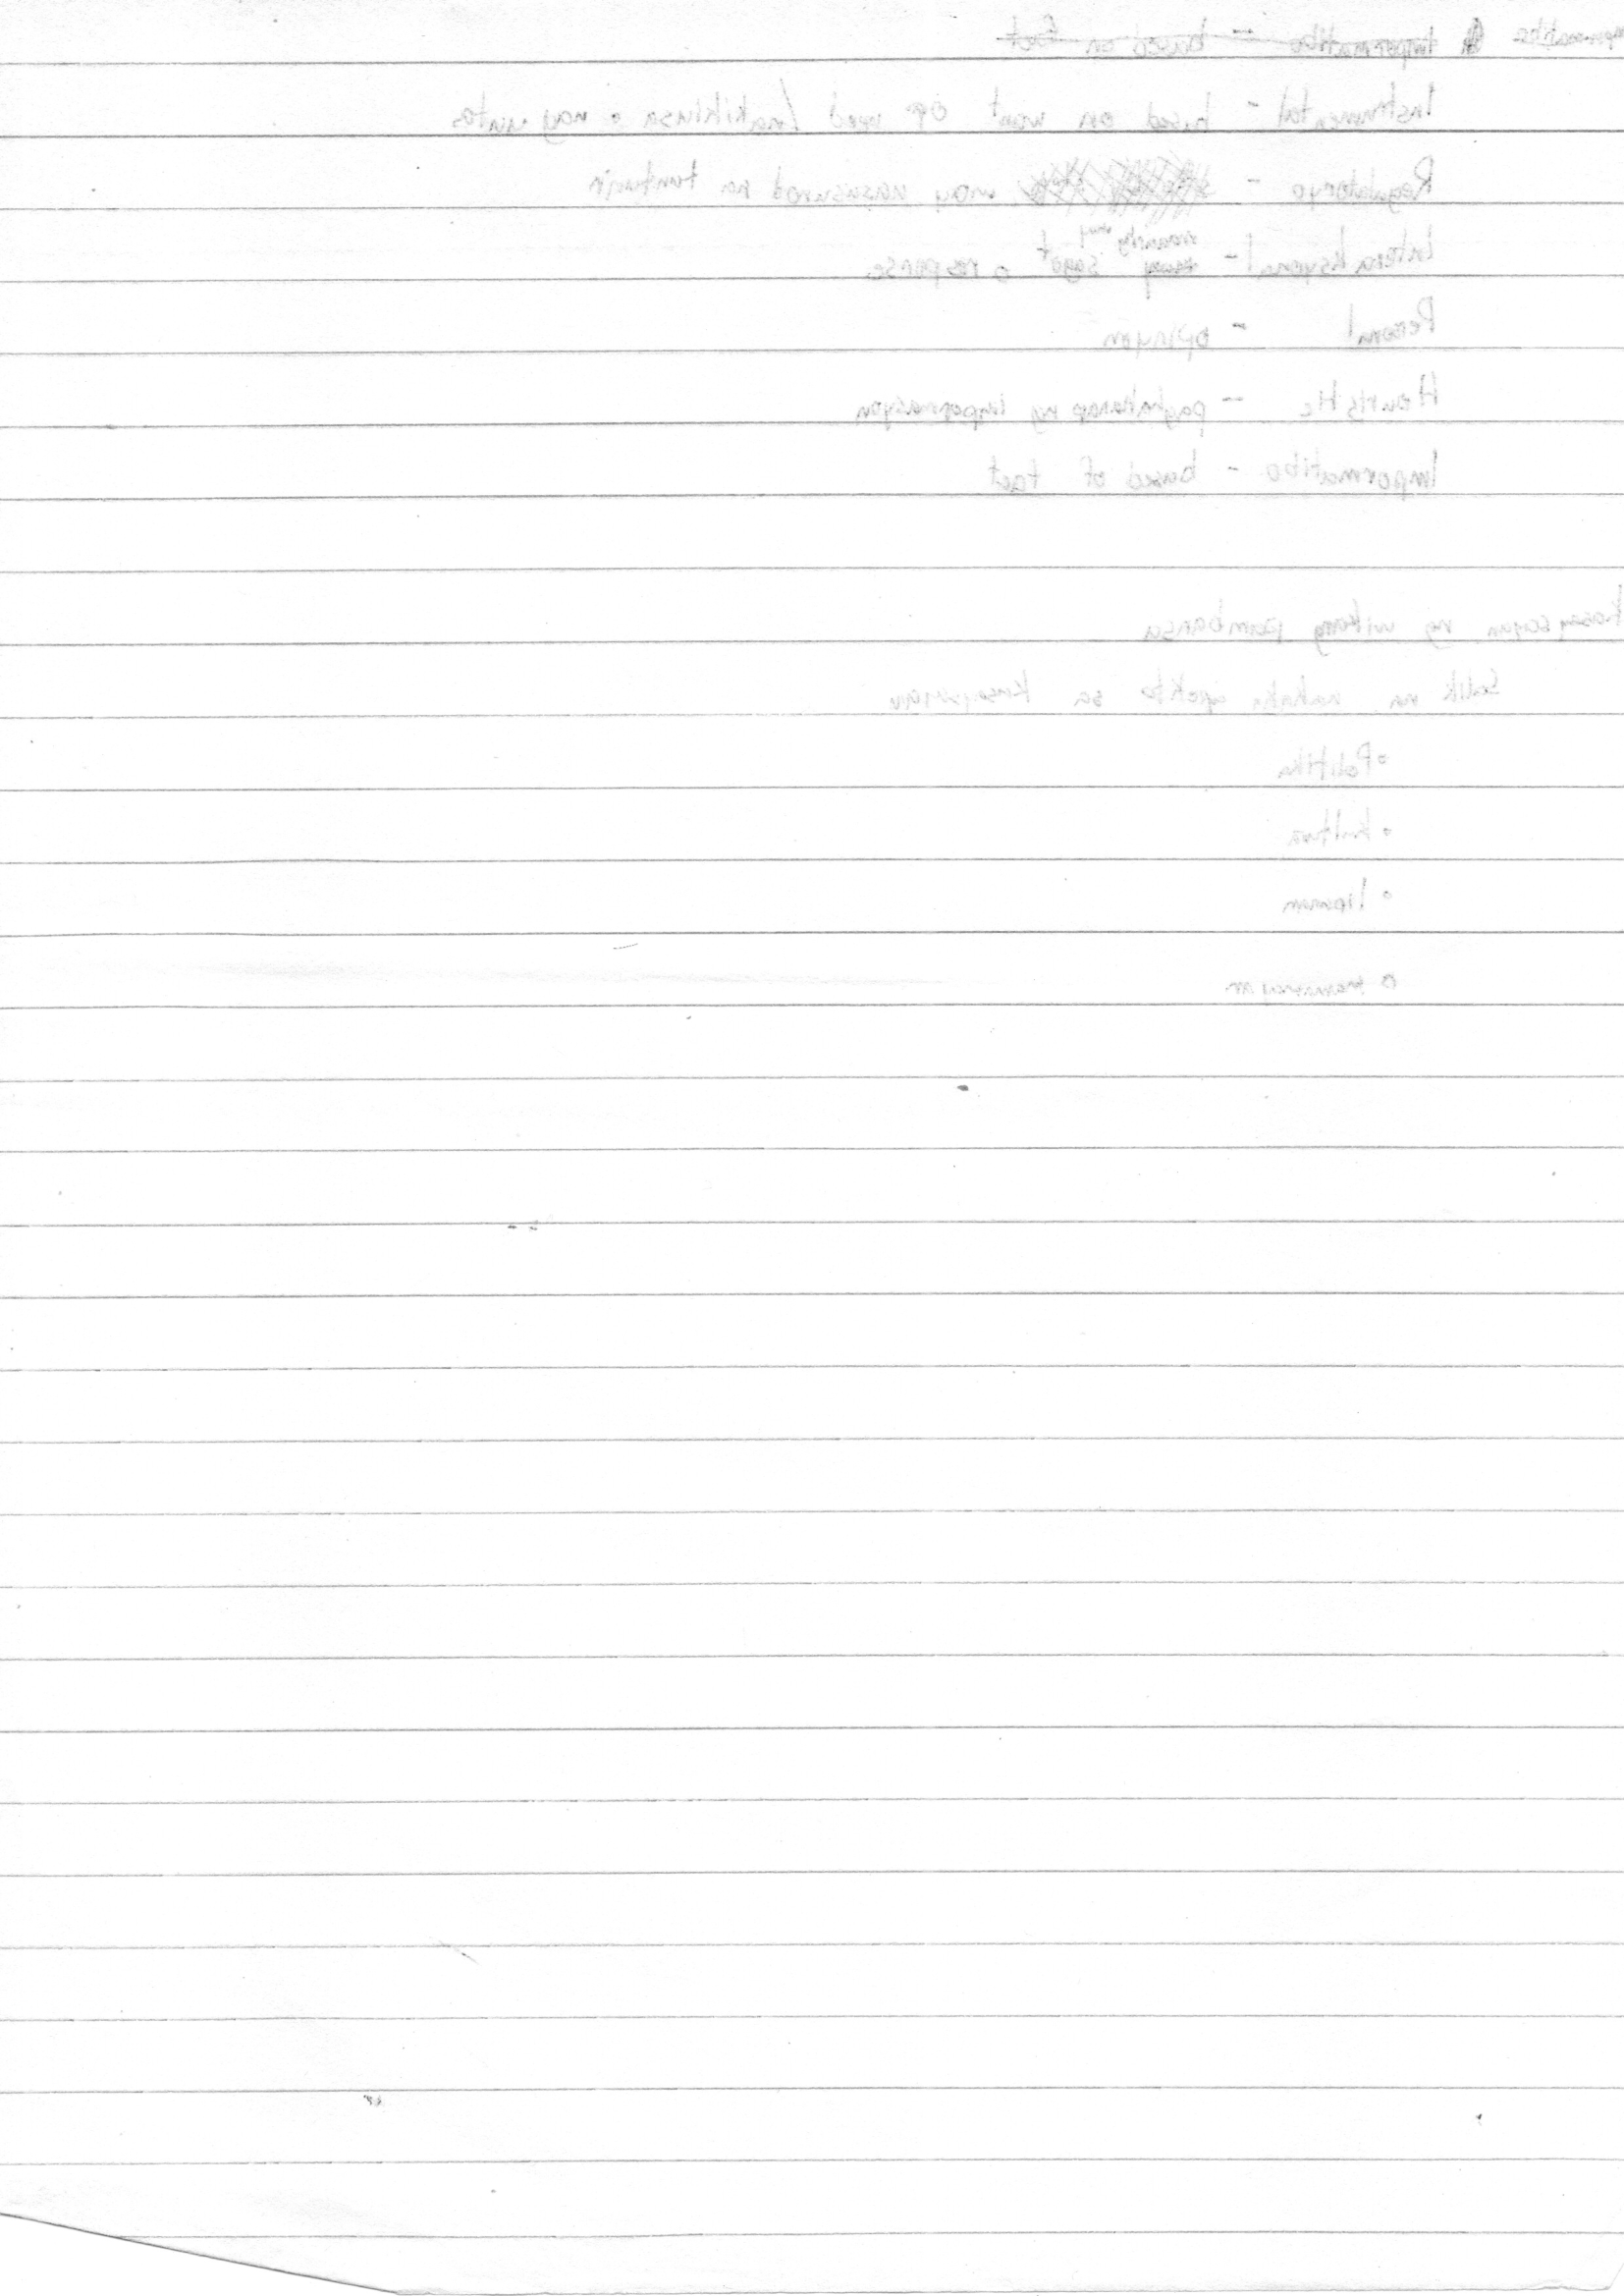 Impormatibo - based on fact
Instrumental - based on want or need /nakikiusap o nag uutos
Regulatoryo - may nasusunod na tuntunin
Interaksyonal - may sagot o response
Personal - opinyon
Heuristic - paghahanap ng impormasyon
Impormatibo - based of fact
kasaysayan ng wikang pambansa
Salik na nakaka apekto sa kasaysayan
• Politika
• kultura
• lipunan